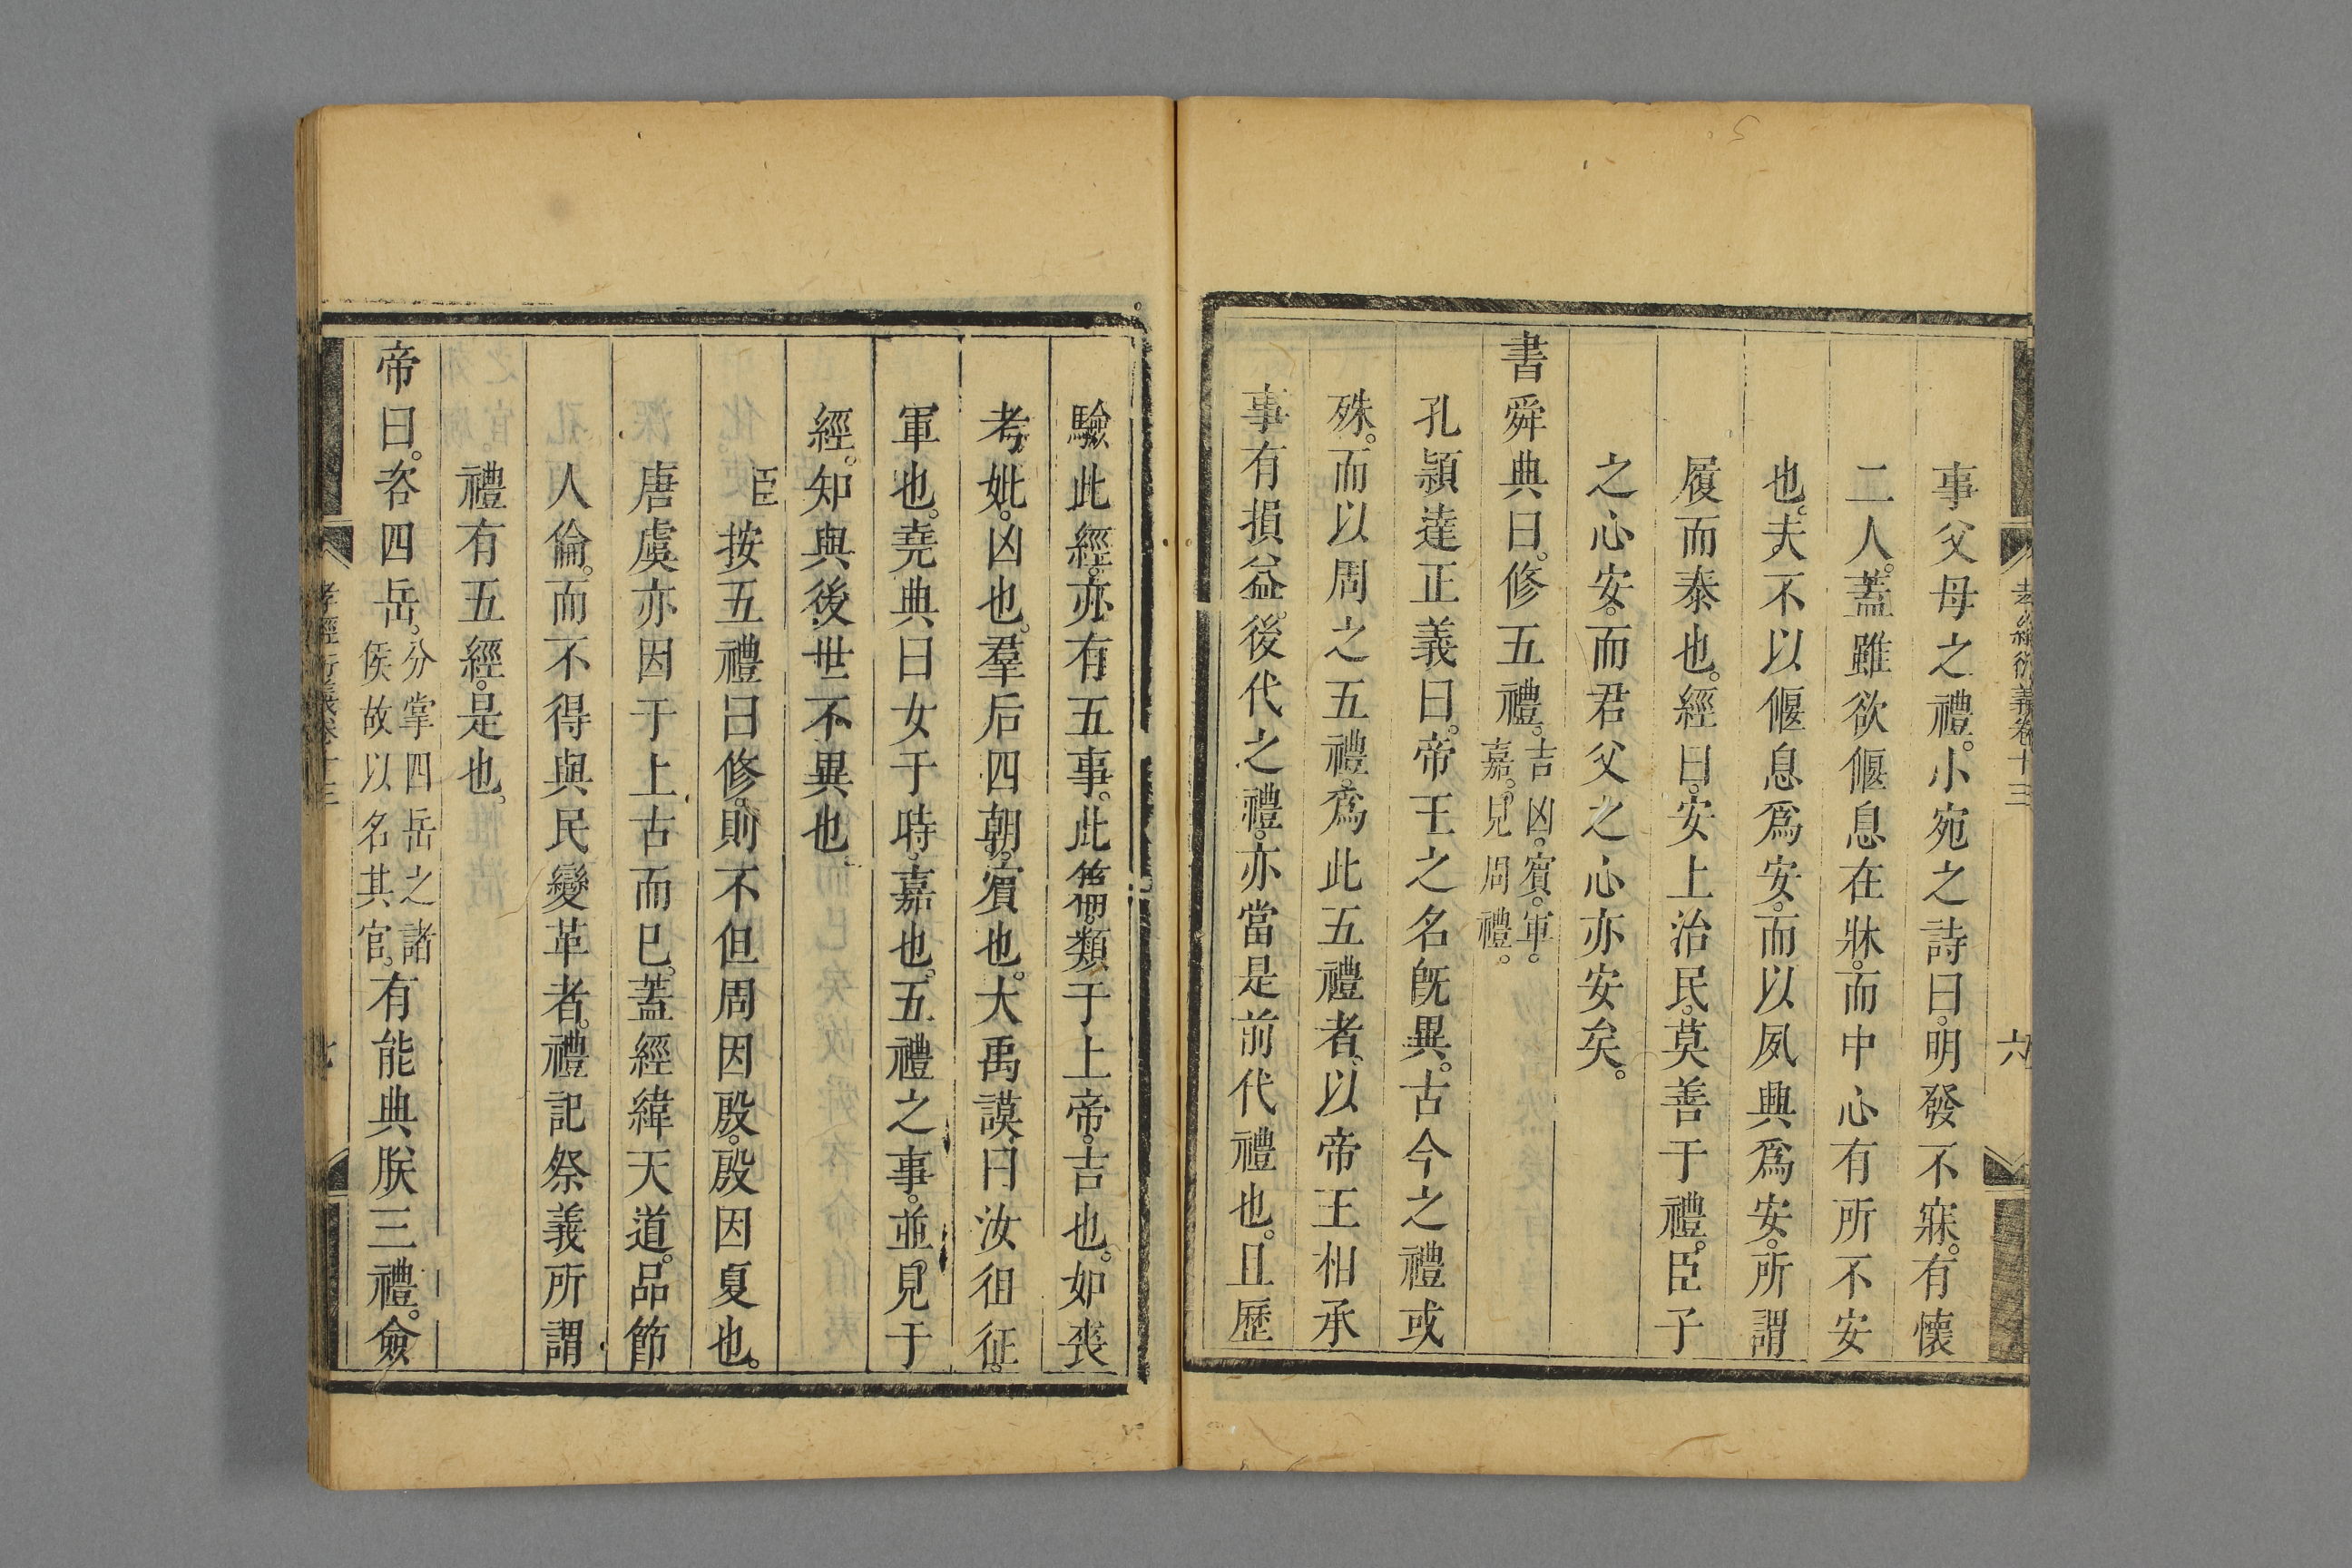 孝經衍義卷十三
六
事父母之禮。小宛之詩曰。明發不寐。有懷
二人。蓋雖欲偃息在牀。而中心有所不安
也。夫不以偃息爲安。而以夙興爲安。所謂
履而泰也。經曰。安上治民。莫善于禮。臣子
之心安。而君父之心亦安矣。
書舜典曰。修五禮。吉凶。賓。軍。嘉。見周禮。
孔頴逹正義曰。帝王之名旣異。古今之禮或
殊。而以周之五禮。爲此五禮者。以帝王相承
事有損益。後代之禮。亦當是前代禮也。且歷
驗此經。亦有五事。此篇類于上帝。吉也。如喪
考妣。凶也。羣后四朝。賓也。大禹謨曰汝徂征。
軍也。堯典曰女于時。嘉也。五禮之事。並見于
經。知與後世不異也
臣按五禮曰修。則不但周因殷。殷因夏也。
唐虞亦因于上古而巳。蓋經緯天道。品節
人倫。而不得與民變革者。禮記祭義所謂
禮有五經。是也。
帝曰。咨四岳。分掌四岳之諸侯故以名其官。有能典朕三禮。僉
孝經衍義卷十三
七